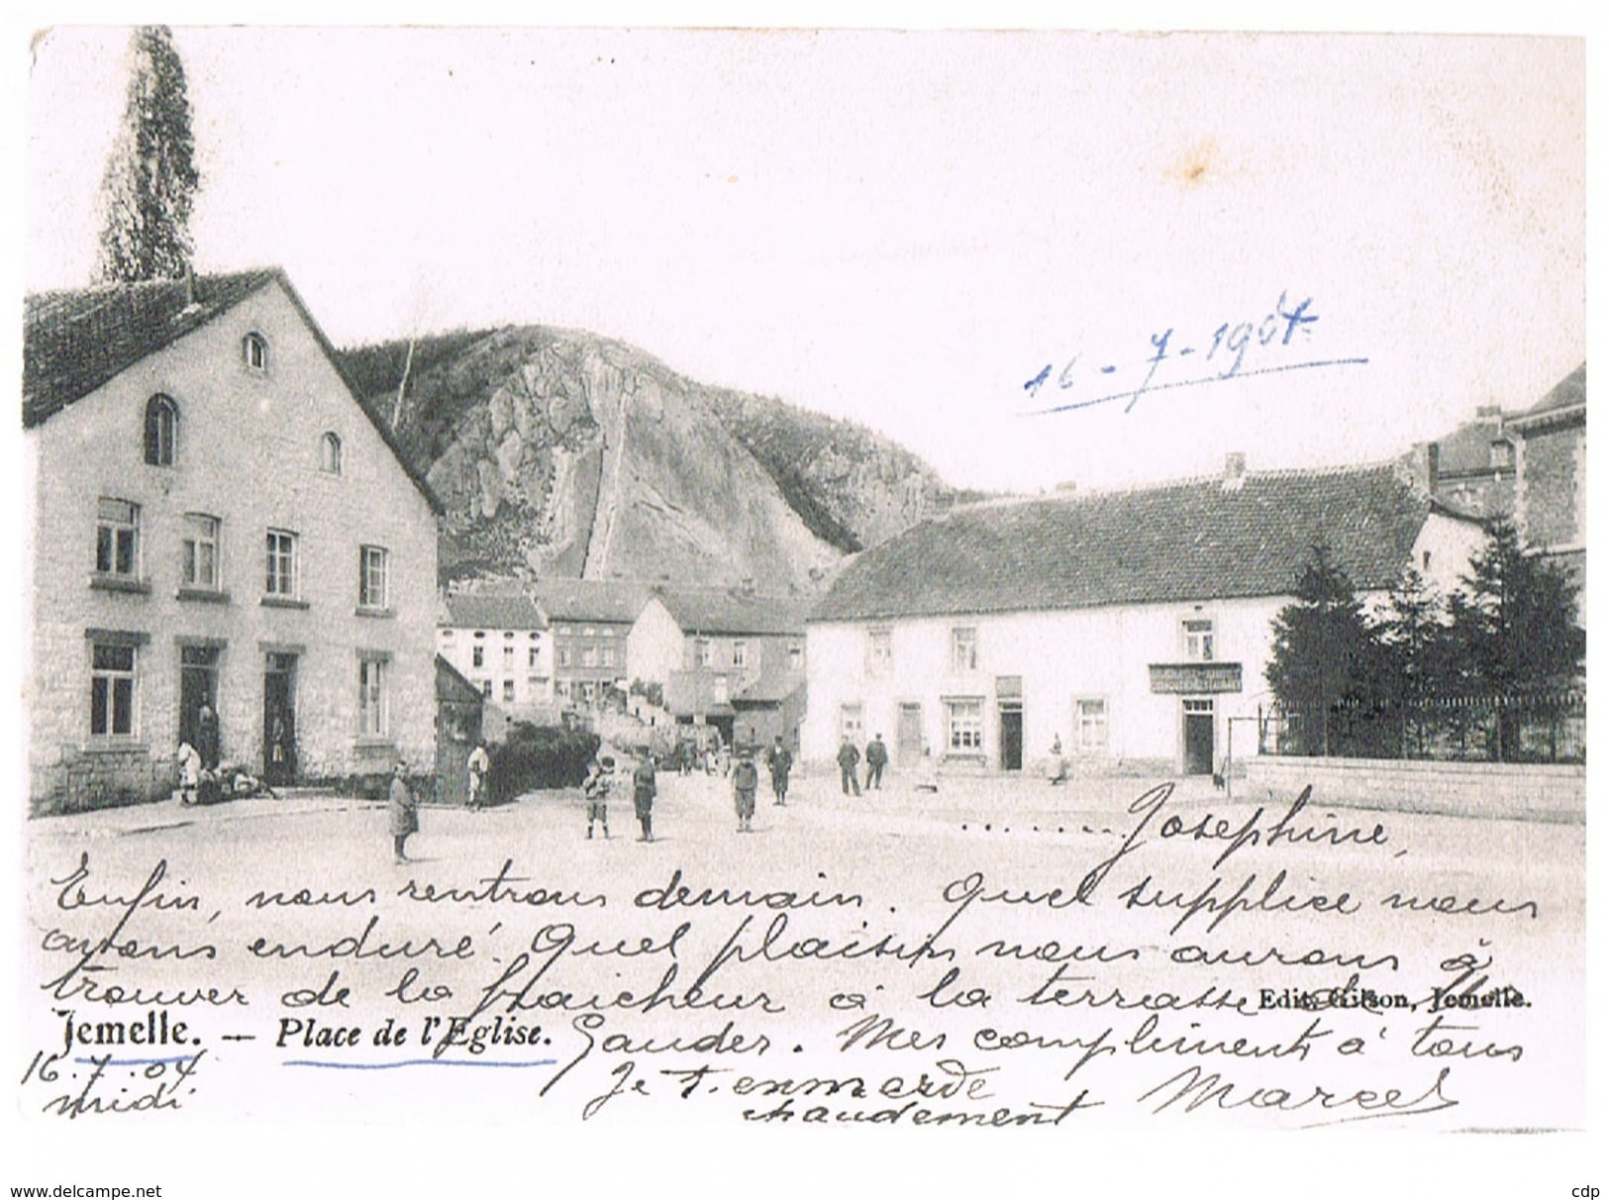 16-7-1904
....... Josephine,
Enfin, nous rentrons demain. Quel supplice nous
avons enduré. Quel plaisir nous aurons à
trouver de la fraicheur à la terrasse de
Edit. Gilson, Jemelle.
Jemelle. — Place de l'Eglise.
Gauder. Mes compliments à tous
16.7.04
midi
Je t'enmerde
chaudement
Marcel
www.delcampe.net
cdp